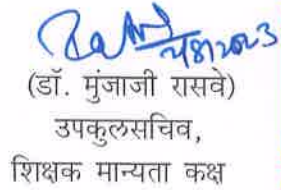 (डॉ. मुंजाजी रासवे)
उपकुलसचिव,
शिक्षक मान्यता कक्ष